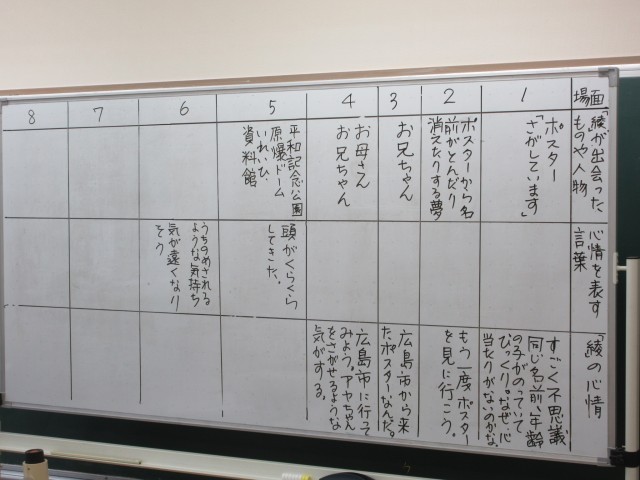 場面
1
2
3
4
5
6
7
8
「綾」が出会った
ものや人物
ポスター
「さがしています」
ポスターから名
前がとんだり
消えたりする夢
お兄ちゃん
お母さん
お兄ちゃん
平和記念公園
原爆ドーム
いれいひ
資料館
心情を表す
言葉
頭がくらくら
してきた。
うちのめされる
ような気持ち
気が遠くなり
そう
「綾」の心情
すごく不思議
同じ名前、年齢
の子がのっていて
びっくり。なぜ、心
当たりがないのかな。
もう一度ポスター
を見に行こう。
広島市から来
たポスターなんだ。
広島市に行って
みよう。アヤちゃん
をさがせるような
気がする。